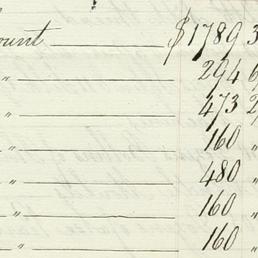 ount $1789 3
" 294 6
" 473 2
" 160 "
" 480 "
" 160 "
" 160 "